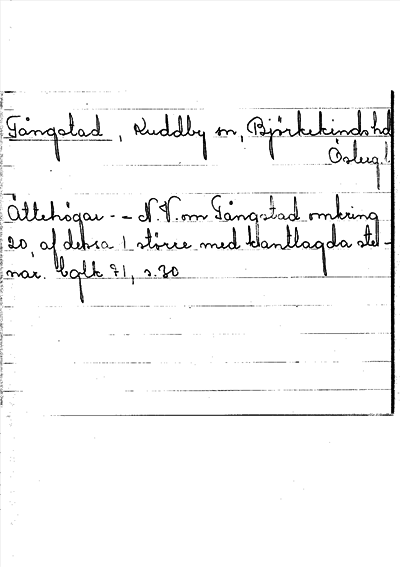 Tångstad, Kuddby sn, Björkekindshd
Östergl.
Ättehögar - - N.V. om Tångstad omkring
20, af dessa 1 större med kantlagda ste-
nar. Eglk 71, s. 30